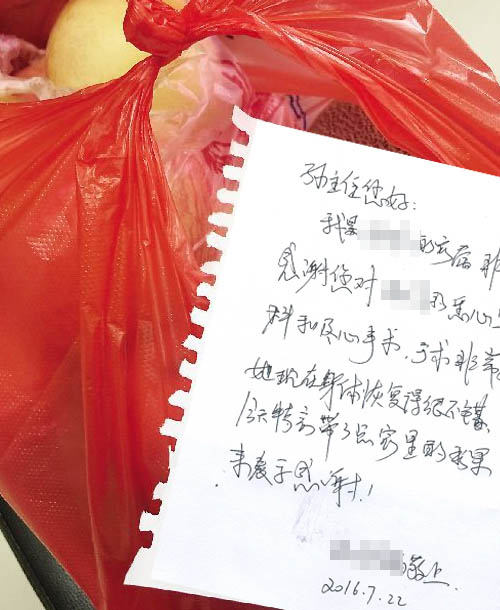 孙主任您好:
我是 的 非
感谢您对 的悉心
料和尽心手术,手术非常
她现在身体恢复得很不错,
今天特意带了点家里的水果
来表示感谢!
敬上
2016.7.22